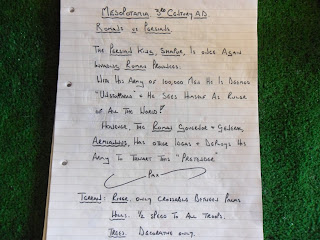 MESOPOTAMIA 3RD CENTURY AD
ROMANS VS PERSIANS.
THE PERSIAN KING, SHAPUR, IS ONCE AGAIN
INVADING ROMAN PROVINCES.
WITH HIS ARMY OF 100,000 MEN HE IS DEEMED
"UNSTOPPABLE" & HE SEES HIMSELF AS RULER
OF ALL THE WORLD!
HOWEVER, THE ROMAN GOVERNOR & GENERAL,
HAS OTHER IDEAS & DEPLOYS HIS
ARMY TO THWART THIS "PRETENDER"
TERRAIN: RIVER. ONLY CROSSABLE BETWEEN PALMS
HILLS. 1/2 SPEED TO ALL TROOPS.
TREES. DECORATIVE ONLY.